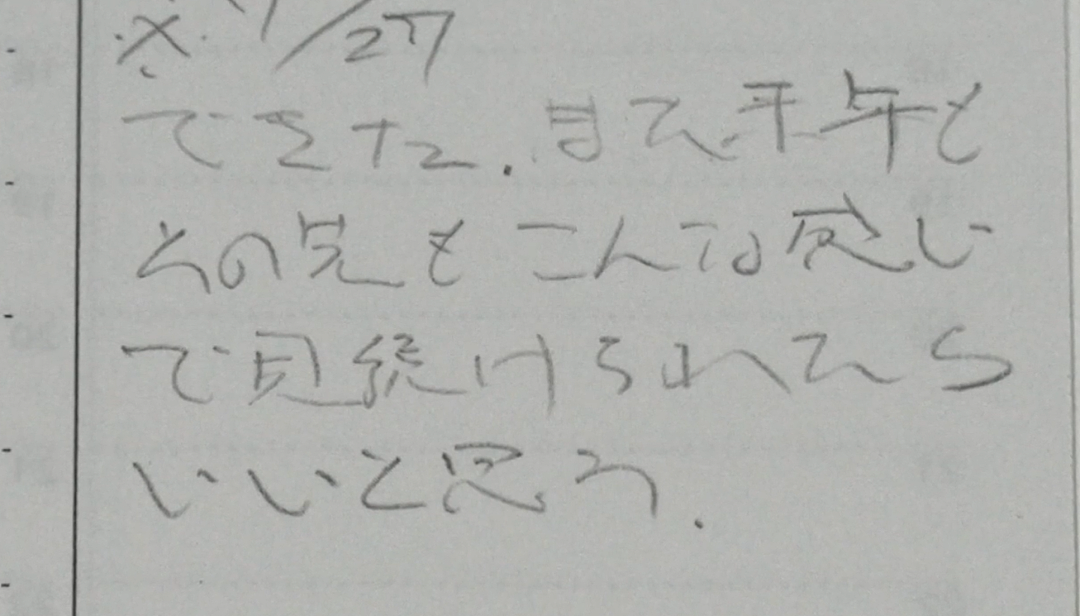 ※ /27
できた.また来年も
その先もこんな感じ
で見続けられたら
いいと思う.